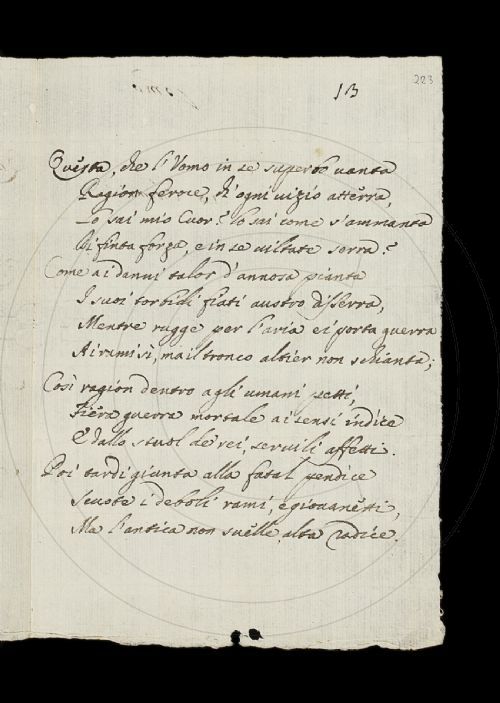 13
223
Questa, che l'Uomo in se superbo vanta
Ragion feroce, ch'ogni vizio atterra,
Lo sai mio Cuor? lo sai come s'ammanta
Di finta forza, e in se viltate serra?
Come ai danni talor d'annosa pianta
I suoi torbidi fiati austro disserra,
Mentre rugge per l'aria ei porta guerra
Ai rami sì, ma il tronco altier non schianta;
Così ragion dentro agli umani petti,
Fiera guerra mortale ai sensi indice
E dallo stuol de rei, servili affetti.
Poi tardi giunta alla fatal pendice
Scuote i deboli rami, e giovanetti,
Ma l'antica non svelle, alta radice.